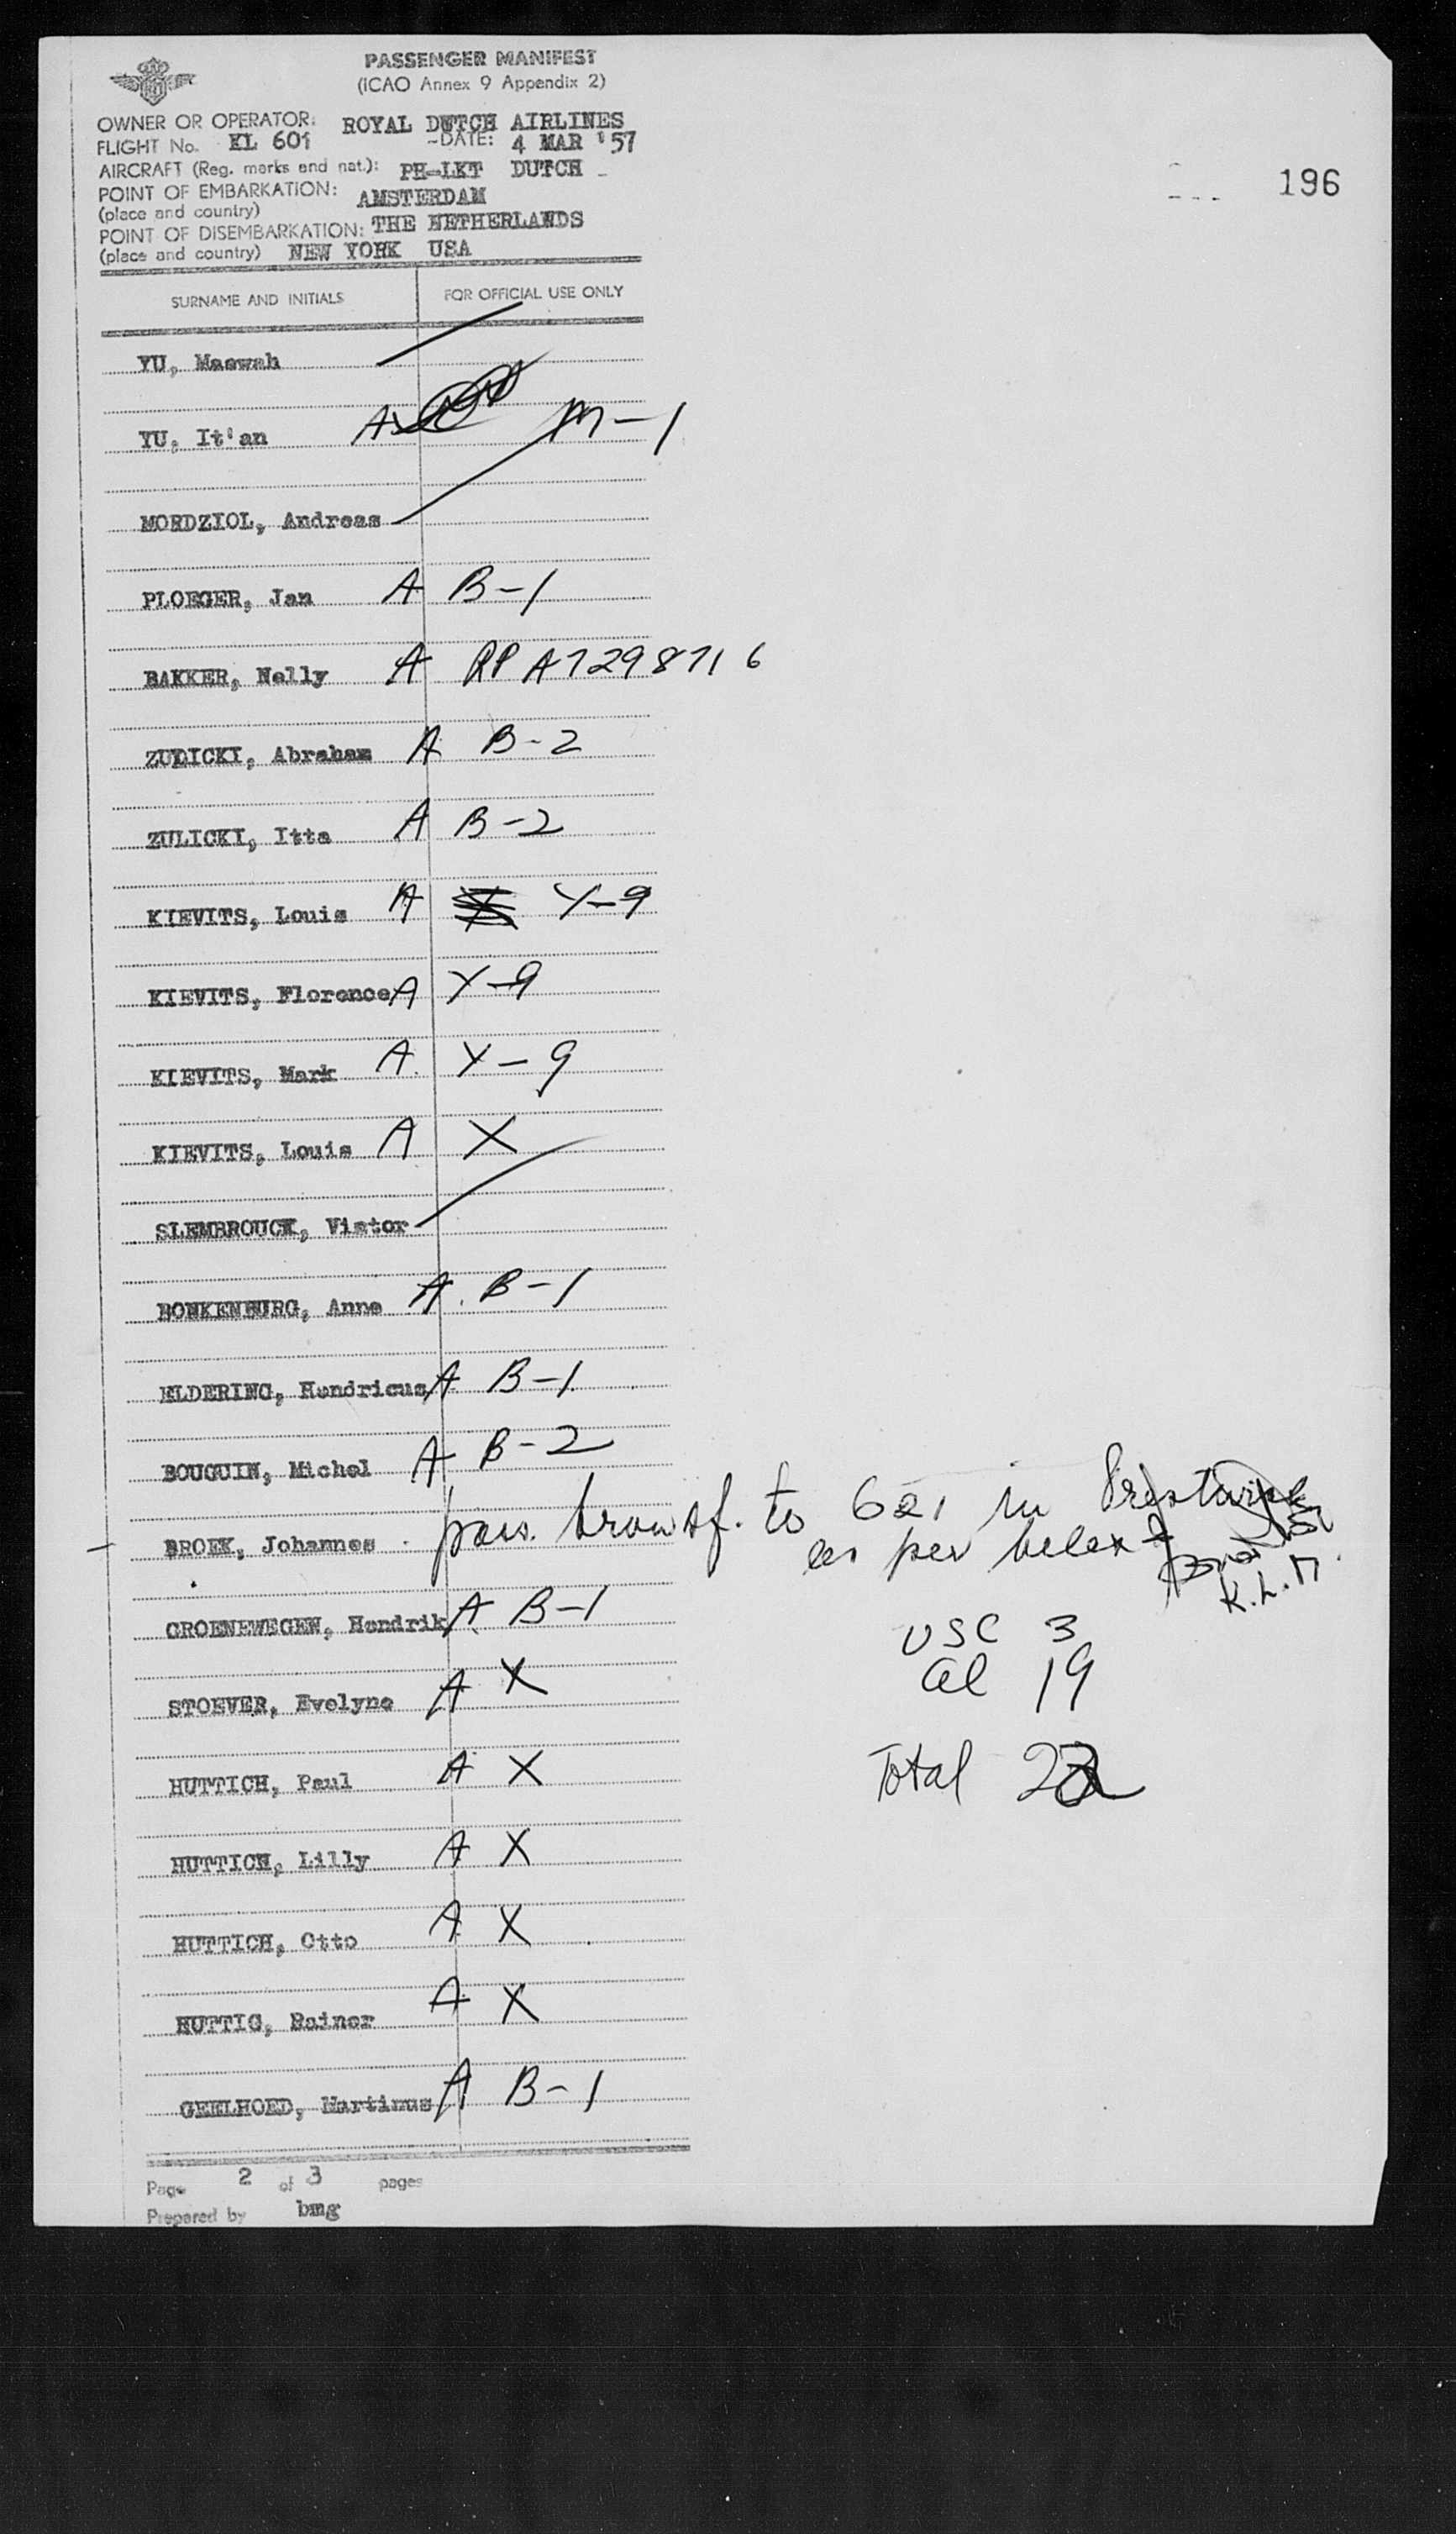 PASSENGER MANIFEST
(ICAO Annex 9 Appendix 2)
OWNER OR OPERATOR: ROYAL DUTCH AIRLINES
FLIGHT No. KL 601 DATE: 4 MAR '57
AIRCRAFT (Reg. marks and nat.): PH-LKT DUTCH
196
POINT OF EMBARKATION: AMSTERDAM
(place and country)
POINT OF DISEMBARKATION: THE NETHERLANDS
(place and country) NEW YORK USA
SURNAME AND INITIALS FOR OFFICIAL USE ONLY
YU, Maewah
YU, It'an A M-1
MORDZIOL, Andreas
PLOEGER, Jan A B-1
BAKKER, Nelly A RP A7298716
ZUDICKI, Abraham A B-2
ZULICKI, Itta A B-2
KIEVITS, Louis A Y-9
KIEVITS, Florence A Y-9
KIEVITS, Mark A Y-9
KIEVITS, Louis A X
SLEMBROUCK, Viator
BONKENBURG, Anne A B-1
ELDERING, Hendricus A B-1
BOUGUIN, Michel A B-2
pass. transf. to 621 in Prestwick
BROEK, Johannes as per telex
K.L.M.
GROENEWEGEN, Hendrik A B-1
USC 3
al 19
STOEVER, Evelyne A X
HUTTICH, Paul A X
Total 22
HUTTICH, Lilly A X
HUTTICH, Otto A X
HUTTIG, Rainer A X
GEELHOED, Martinus A B-1
Page 2 of 3 pages
Prepared by bmg